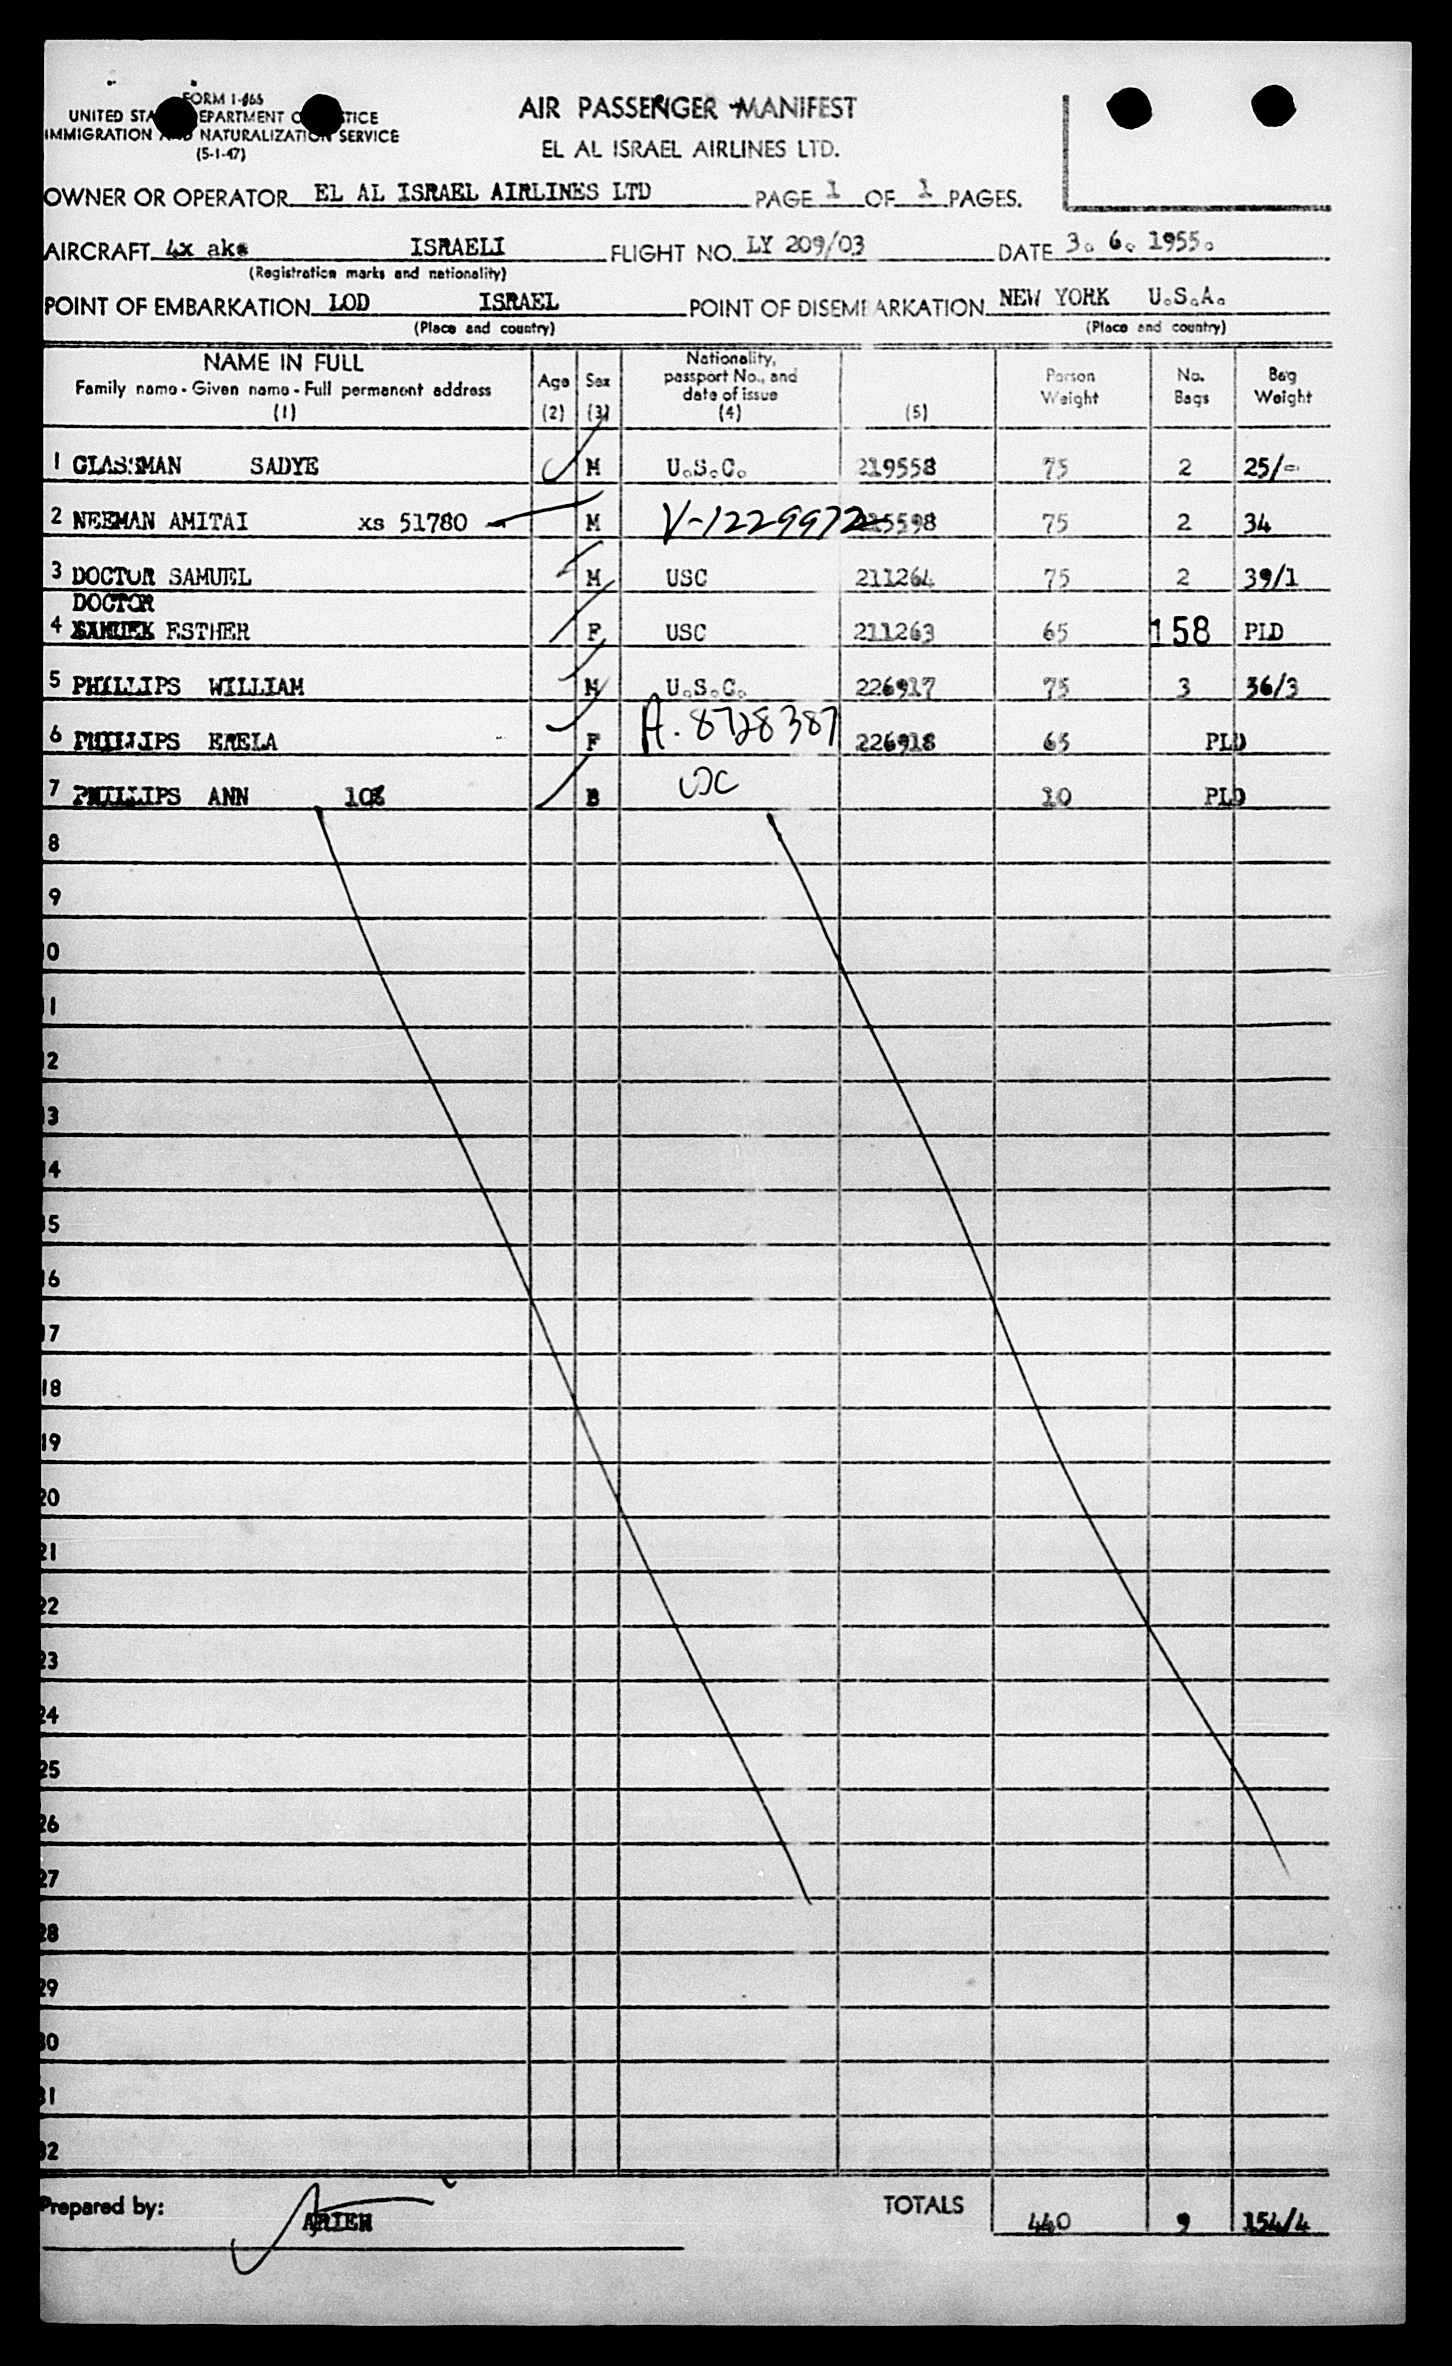 FORM I-466
UNITED STA EPARTMENT O TICE
IMMIGRATION AND NATURALIZATION SERVICE
(5-1-47)
AIR PASSENGER MANIFEST
EL AL ISRAEL AIRLINES LTD.
OWNER OR OPERATOR EL AL ISRAEL AIRLINES LTD PAGE 1 OF 1 PAGES.
AIRCRAFT 4x ake ISRAELI FLIGHT NO. LY 209/03 DATE 3. 6. 1955.
(Registration marks and nationality)
POINT OF EMBARKATION LOD ISRAEL POINT OF DISEMBARKATION NEW YORK U.S.A.
(Place and country) (Place and country)
NAME IN FULL
Family name - Given name - Full permanent address
(1)
Age
(2)
Sex
(3)
Nationality,
passport No., and
date of issue
(4)
(5)
Person
Weight
No.
Bags
Bag
Weight
1 GLASSMAN SADYE M U.S.C. 219558 75 2 25/-
2 NEEMAN AMITAI xs 51780 M V-1229972 215598 75 2 34
3 DOCTOR SAMUEL M USC 211264 75 2 39/1
DOCTOR
4 SAMUEK ESTHER F USC 211263 65 158 PLD
5 PHILLIPS WILLIAM M U.S.C. 226917 75 3 56/3
6 PHILLIPS ERELA F A-8728387 226918 65 PLD
7 PHILLIPS ANN 10% B USC 10 PLD
8
9
10
11
12
13
14
15
16
17
18
19
20
21
22
23
24
25
26
27
28
29
30
31
32
Prepared by: ARIEH TOTALS 440 9 154/4